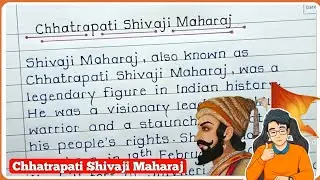 Date
Chhatrapati Shivaji Maharaj
Shivaji Maharaj, also known as
Chhatrapati Shivaji Maharaj, was a
legendary figure in Indian history
He was a visionary
warrior and a staunch
his people's rights.
in 19th Febru
Chhatrapati Shivaji Maharaj